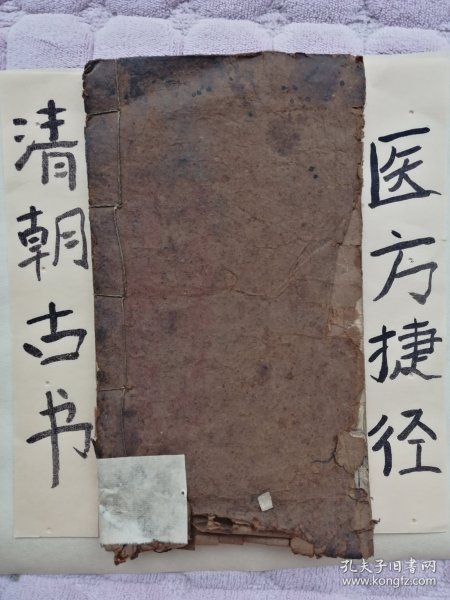 清朝古书
医方捷径
孔夫子旧书网
www.kongfz.com